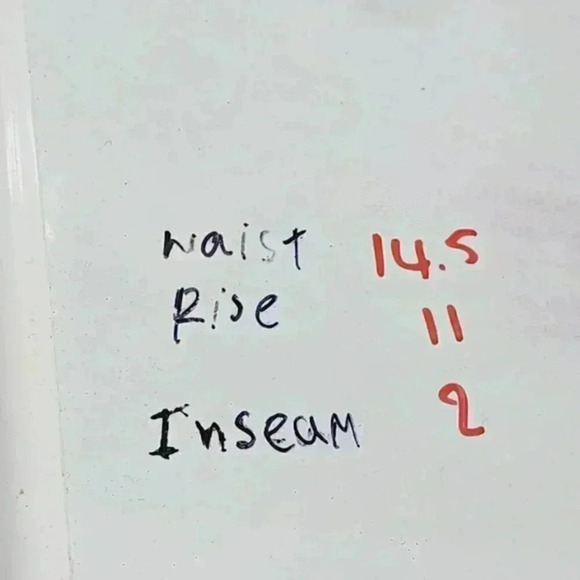 waist 14.5
Rise 11
Inseam 2